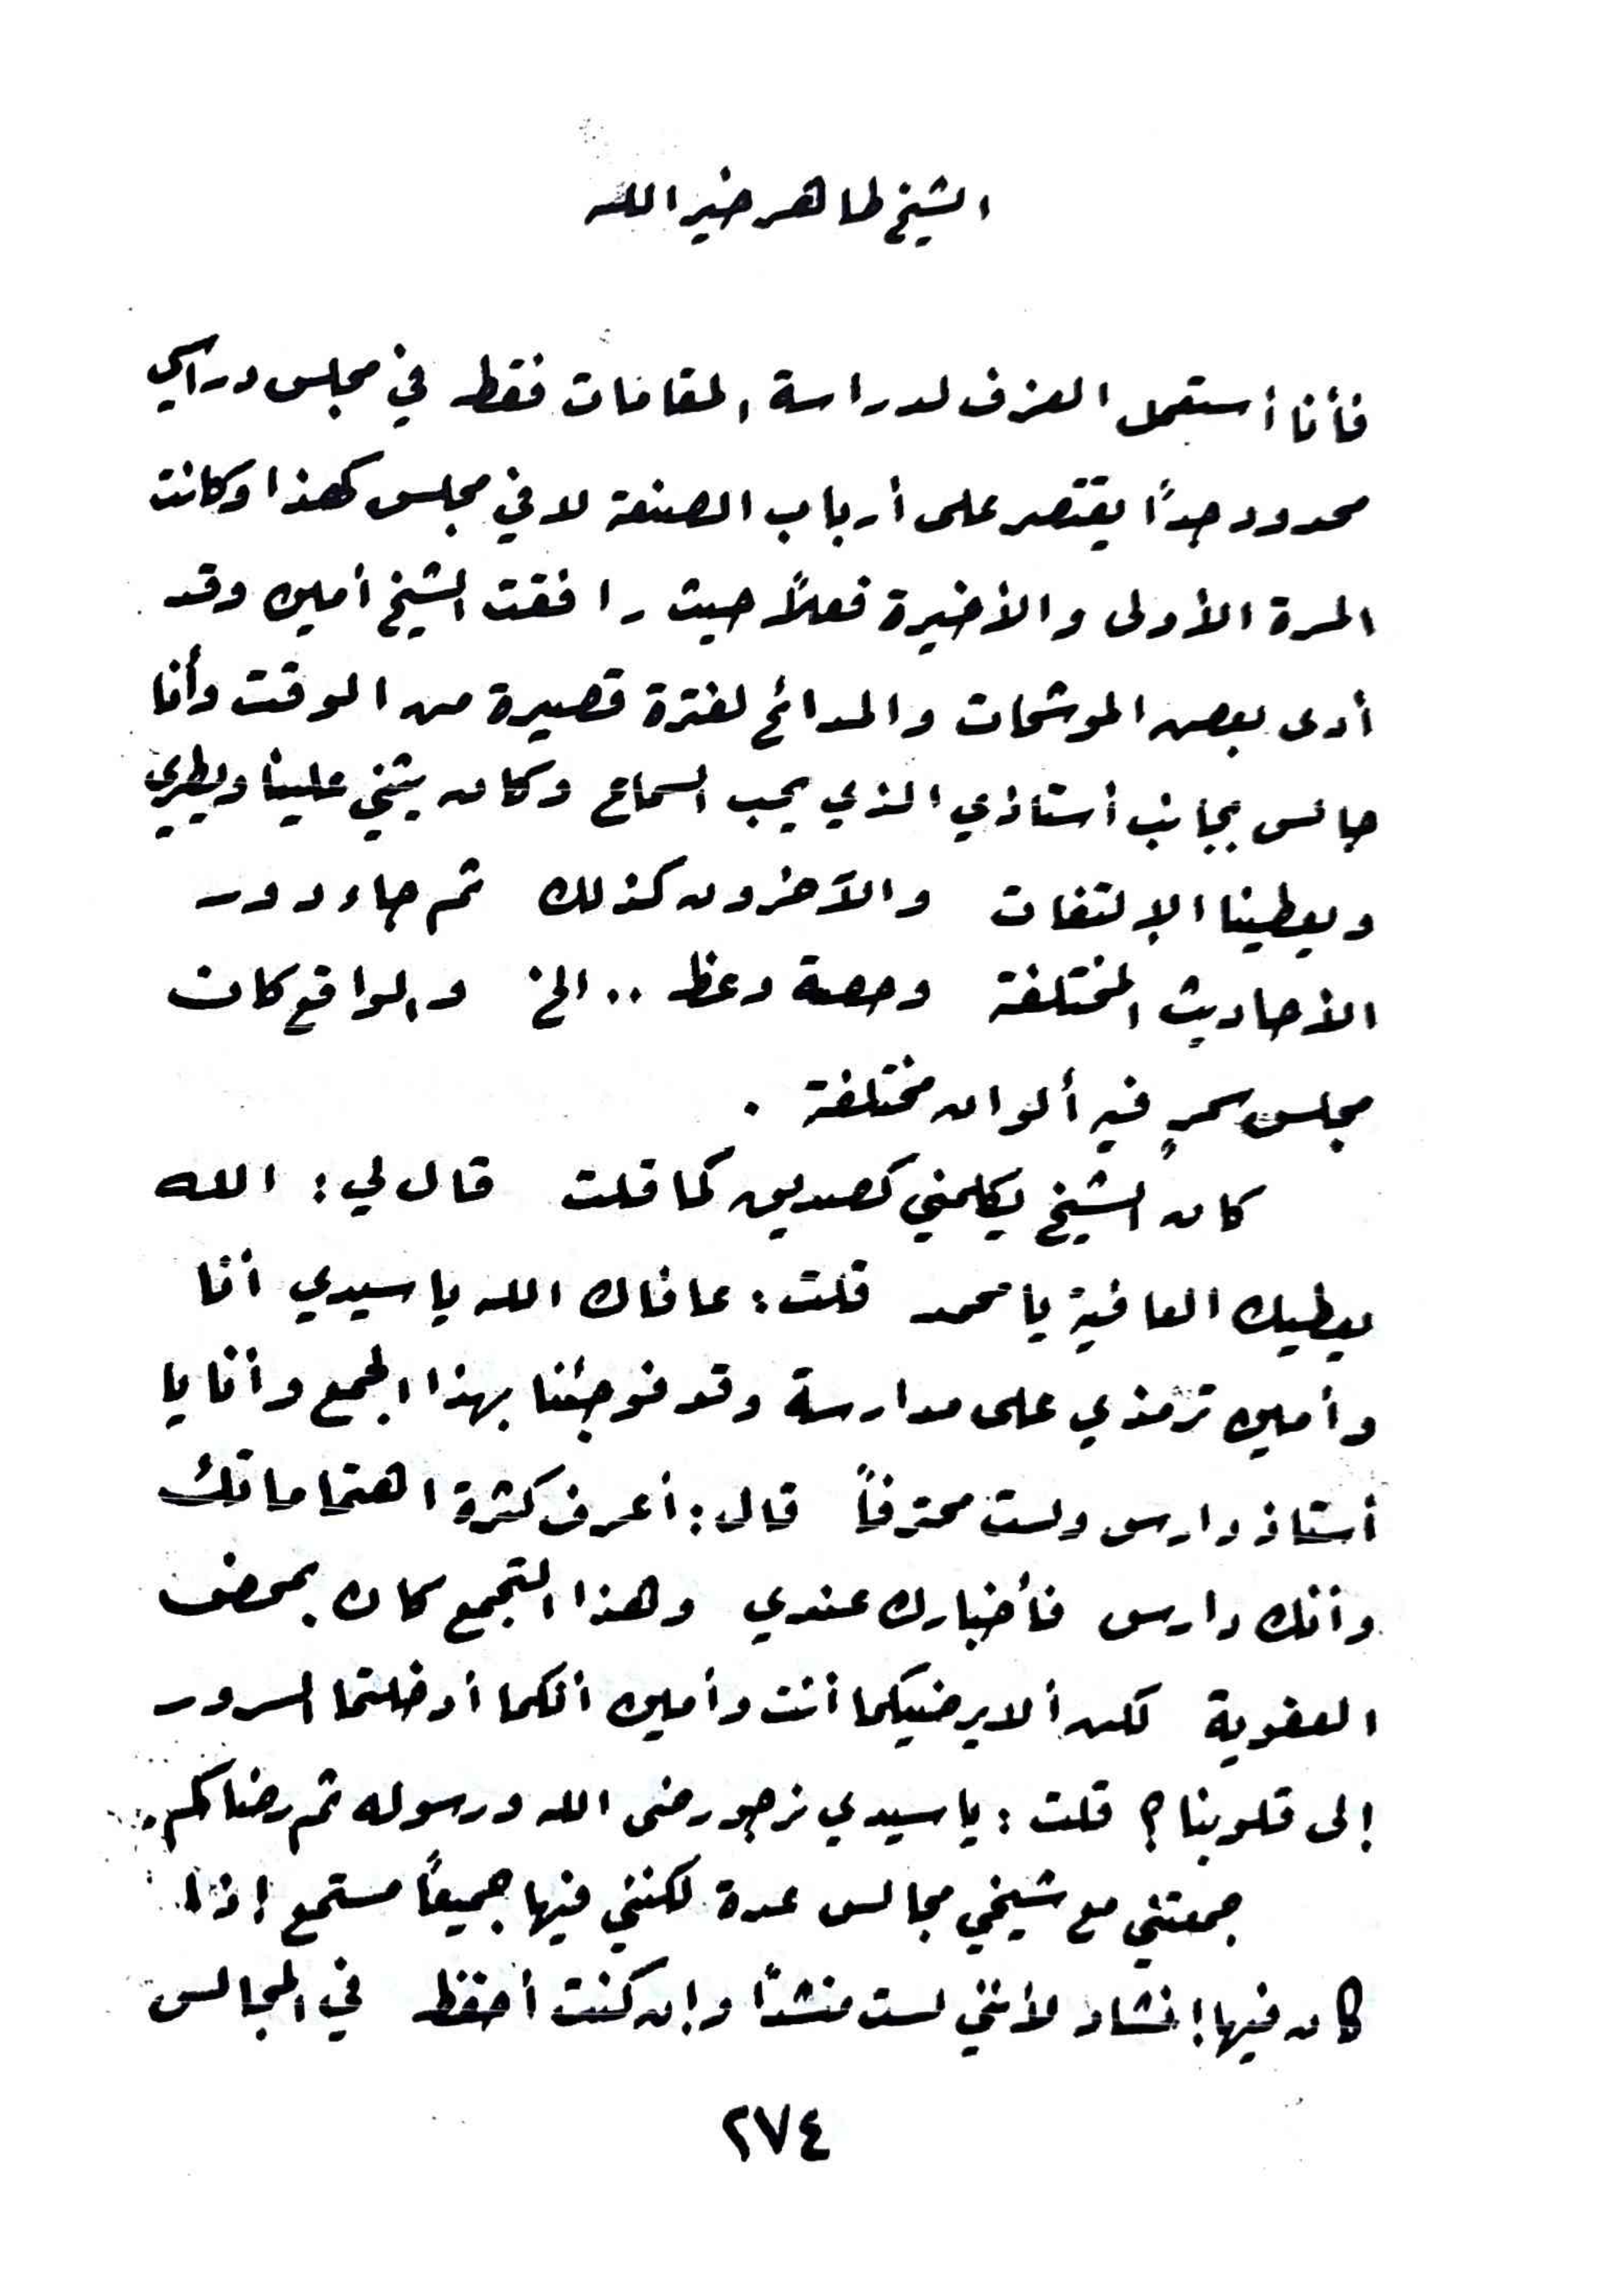 الشيخ طاهر خير الله
فأنا أستعمل العزف لدراسة المقامات فقط في مجلس دراسي
محدود جداً يقتصر على أرباب الصنعة لا في مجلس كهذا وكانت
المرة الأولى والأخيرة فعلاً حيث رافقت الشيخ أمين وقد
أدى بعض الموشحات والمدائح لفترة قصيرة من الوقت وأنا
جالس بجانب أستاذي الذي يحب السماع وكان يثني علينا ويطري
ويعطينا الإلتفات والآخرون كذلك ثم جاء دور
الأحاديث المختلفة وحصة وعظ .. الخ والواقع كان
مجلس سمرٍ فيه ألوان مختلفة .
كان الشيخ يكلمني كصديق كما قلت قال لي : الله
يعطيك العافية يا محمد قلت : عافاك الله يا سيدي أنا
وأمين ترمذي على مدارسة وقد فوجئنا بهذا الجمع وأنا يا
أستاذ دارس ولست محترفاً قال : أعرف كثرة اهتماماتك
وأنك دارس فأخبارك عندي وهذا التجمع كان بمحض
العفوية لكن ألا يرضيكما أنت وأمين أنكما أدخلتما السرور
إلى قلوبنا ؟ قلت : يا سيدي نرجو رضى الله ورسوله ثم رضاكم .
جمعتني مع شيخي مجالس عدة لكنني فيها جميعاً مستمع إذا
كان فيها إنشاد لأنني لست منشداً وإن كنت أحفظ في المجالس
٢٧٤